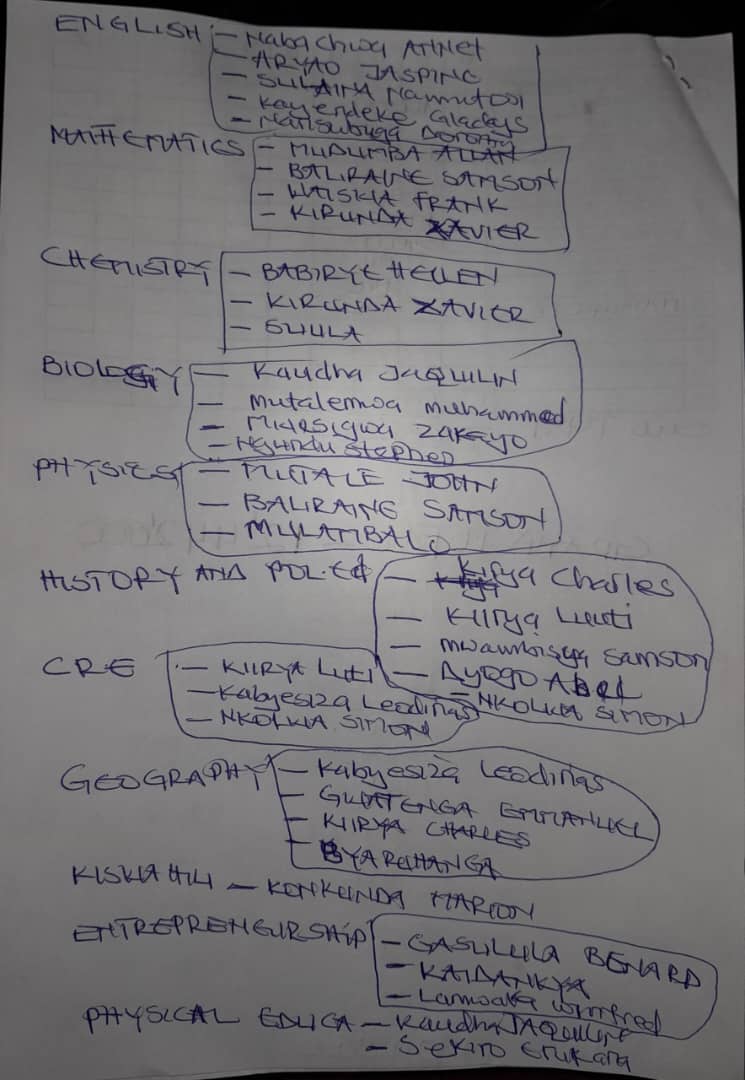 ENGLISH - Nabachwa Annet
- ARYAO JASPINE
- SULAINA Nammutosi
- Kayendeke Gladys
- Nansubuga Dorothy
MATHEMATICS - MUDUMBA ALLAN
- BALIRAINE SAMSON
- WAISWA FRANK
- KIRUNDA XAVIER
CHEMISTRY - BABIRYE HELLEN
- KIRUNDA XAVIER
BIOLOGY - Kaudha JAQUILIN
- Mutalemwa muhammed
- Muhesigwa ZAKEYO
- Ngundu Stephen
PHYSICS - MUTALE JOHN
- BALIRAINE SAMSON
- MULAMBALO
HISTORY AND POL.Ed - Kirya Charles
- Kiirya Luuti
- mwambisya SAMSON
- Ayogo Abel
- NKOLWA SIMON
CRE - KIIRYA Luti
- Kabyesiza Leodinas
- NKOLWA SIMON
GEOGRAPHY - Kabyesiza Leodinas
- GWATENGA EMMANUEL
- KIIRYA CHARLES
- BYARUHANGA
KISWAHILI - KONKUNDA MARION
ENTREPRENEURSHIP - GASULULA BENARD
- KAIDANKYA
- Lamwaka Winnfred
PHYSICAL EDUCA - Kaudha JAQUILINE
- Sekito Erukana